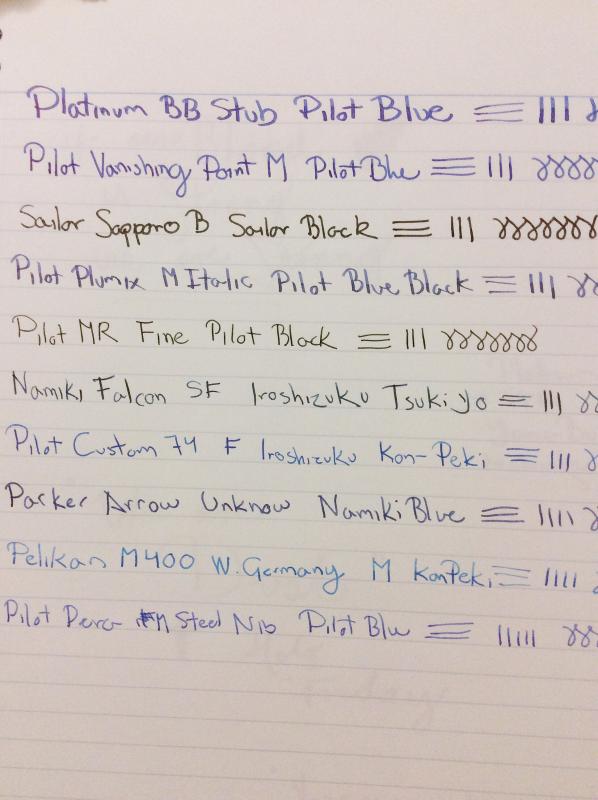 Platinum BB Stub Pilot Blue
Pilot Vanshing Point M Pilot Blue
Sailor Sapporo B Sailor Black
Pilot Plumix M Italic Pilot Blue Black
Pilot MR Fine Pilot Black
Namiki Falcon SF Iroshizuku Tsukiyo
Pilot Custom 74 F Iroshizuku Kon-Peki
Parker Arrow Unknow Namiki Blue
Pelikan M400 W. Germany M KonPeki
Pilot Steel Nib Pilot Blue